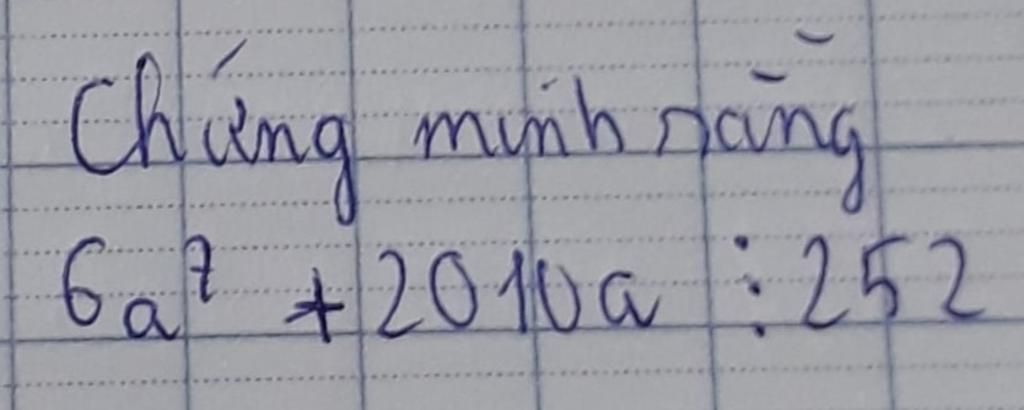 Chứng minh rằng
6a⁷ + 2010a ⋮ 252